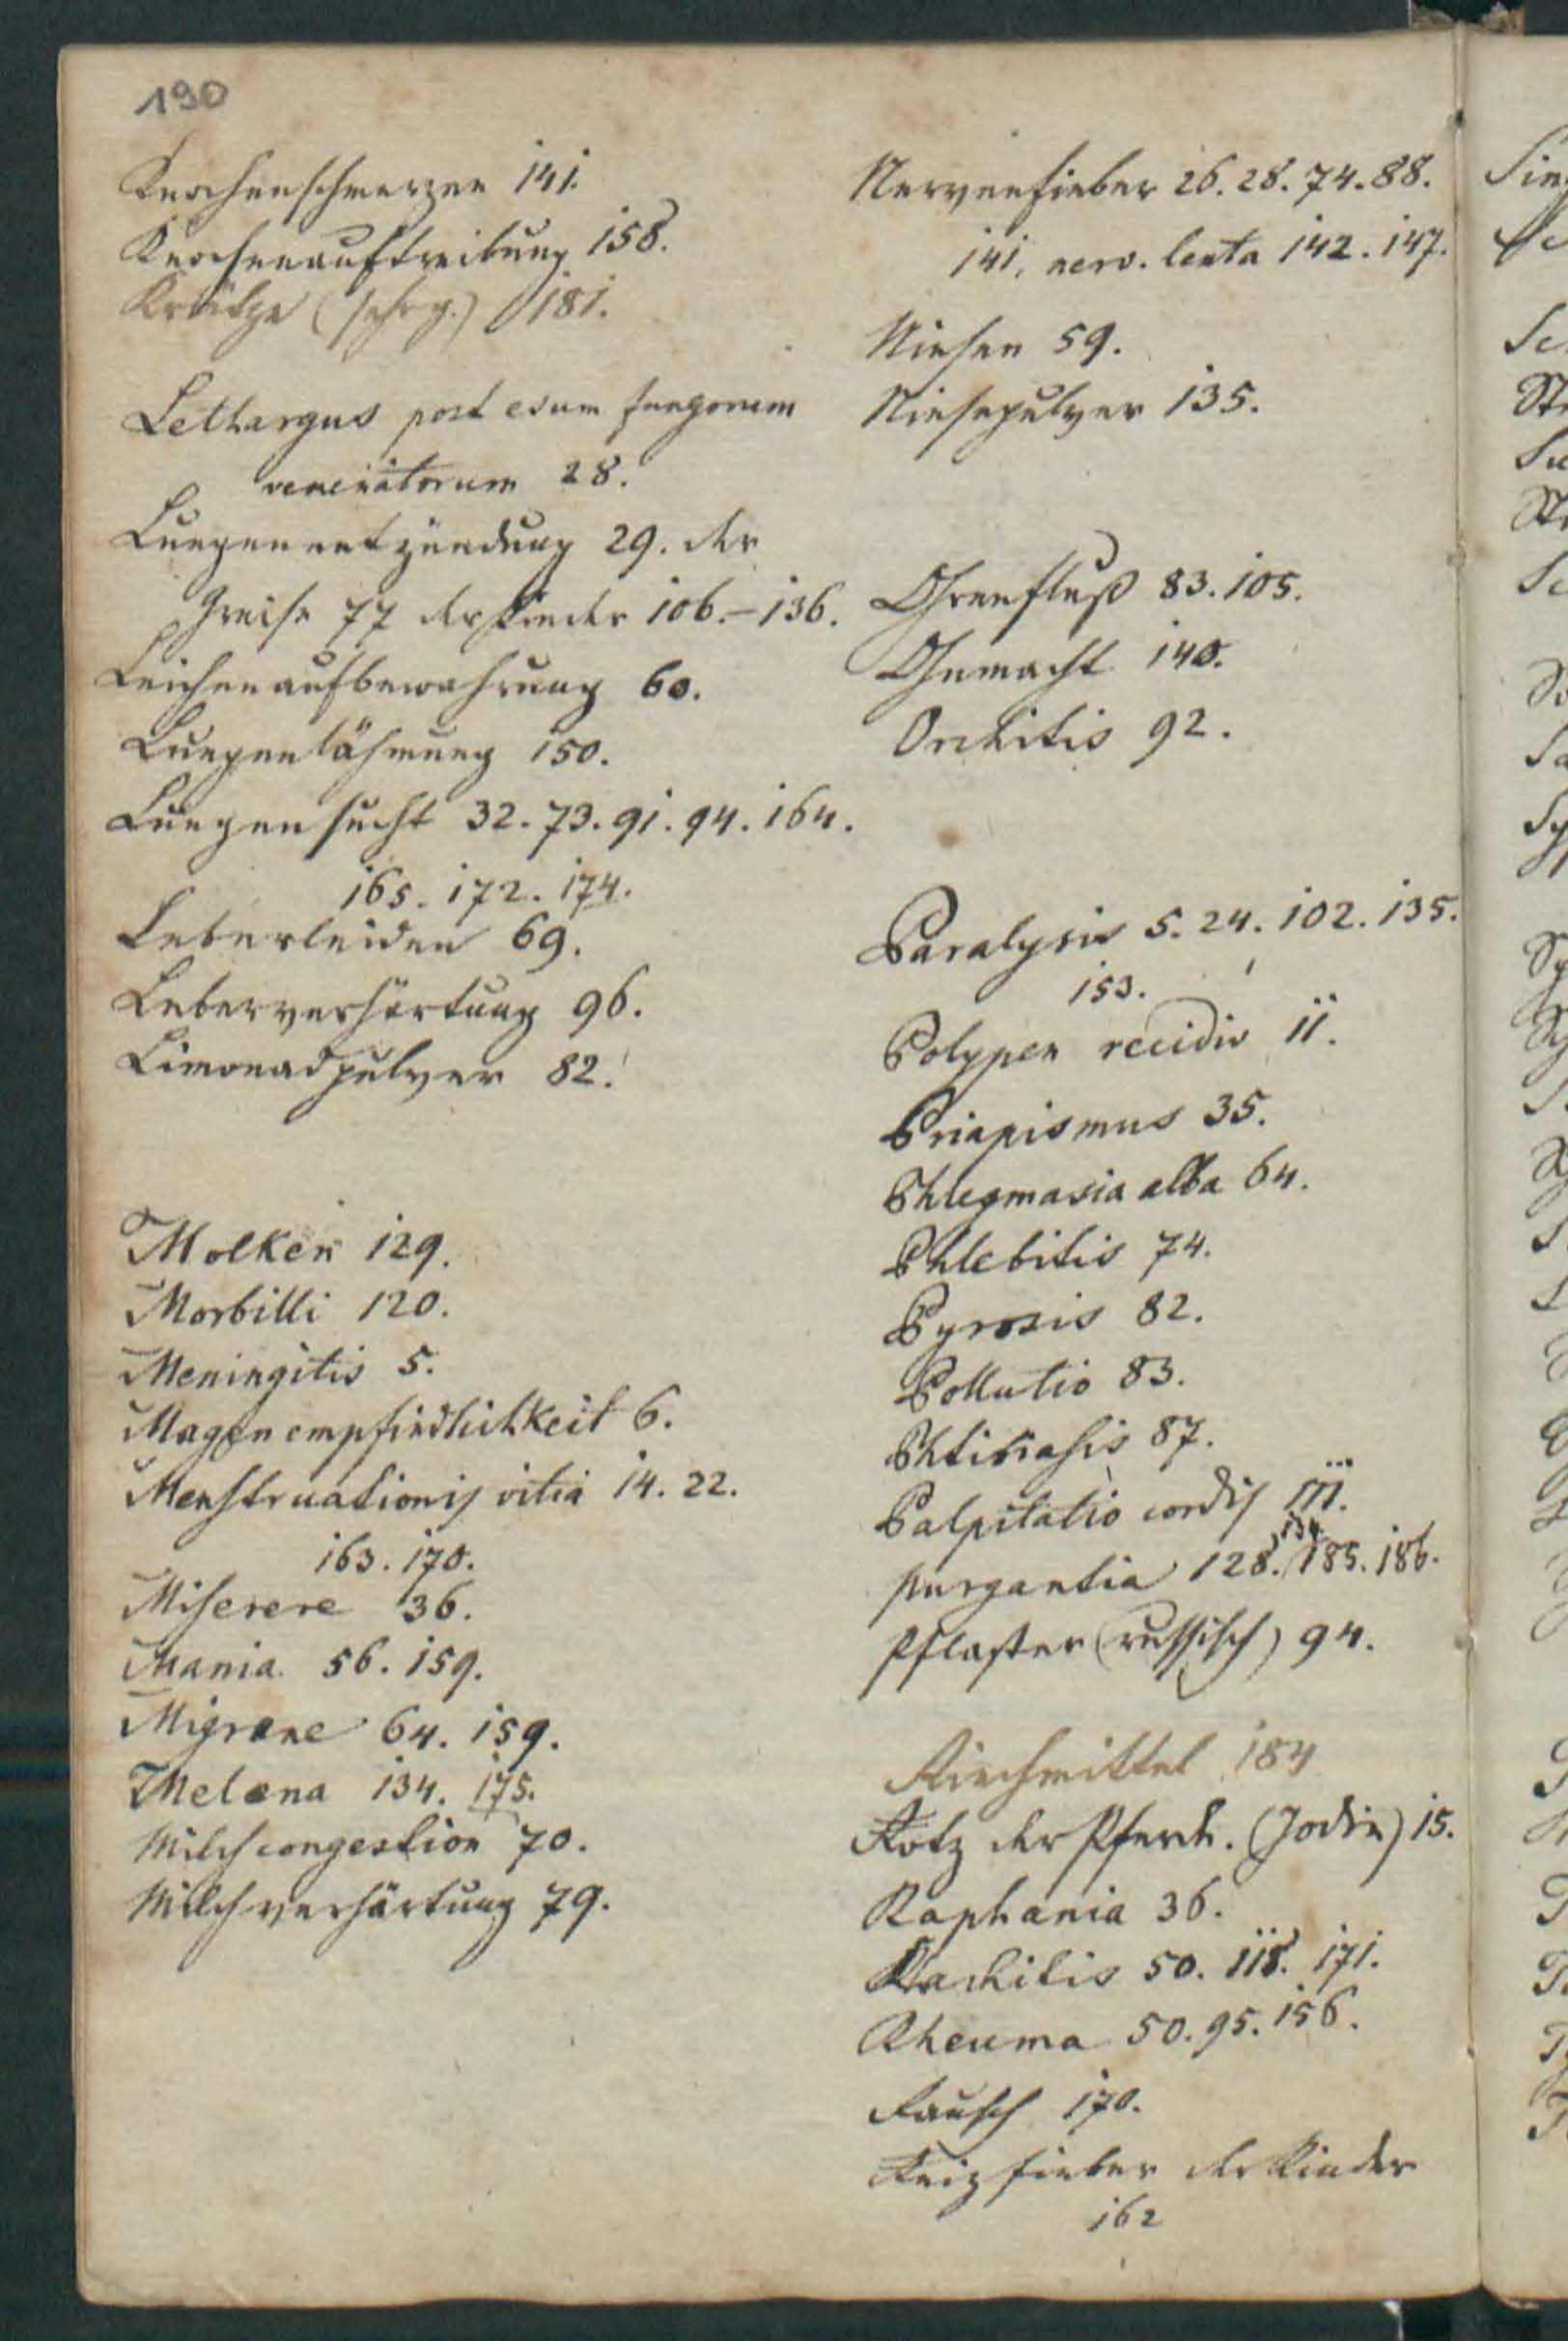 190
Knochenschmerzen 141.
Knochenauftreibung 158.
Krätze (schrg.) 181.
Lethargus post esum fungorum
venenatorum 28.
Lungenentzündung 29. der
Greise 77 der Kinder 106.–136.
Leichenaufbewahrung 60.
Lungenlähmung 150.
Lungensucht 32. 73. 91. 94. 164.
165. 172. 174.
Leberleiden 69.
Leberverhärtung 96.
Limonadpulver 82.
Molken 129.
Morbilli 120.
Meningitis 5.
Magenempfindlichkeit 6.
Menstruationis vitia 14. 22.
163. 170.
Miserere 36.
Mania 56. 159.
Migrane 64. 159.
Melæna 134. 175.
Milchcongestion 70.
Milchverhärtung 79.
Nervenfieber 26. 28. 74. 88.
141. nerv. lenta 142. 147.
Niesen 59.
Niesepulver 135.
Ohrenfluß 83. 105.
Ohnmacht 140.
Orchitis 92.
Paralysis 5. 24. 102. 135.
153.
Polypen recidiv 11.
Priapismus 35.
Phlegmasia alba 64.
Phlebitis 74.
Pyrosis 82.
Pollutio 83.
Phtiriasis 87.
Palpitatio cordis 111.
purgantia 128. 134. 185. 186.
Pflaster (russisch) 94.
Riechmittel 184
Rotz der Pferde. (Jodin) 15.
Raphania 36.
Rachitis 50. 118. 171.
Rheuma 50. 95. 156.
Rausch 170.
Reizfieber der Kinder
162